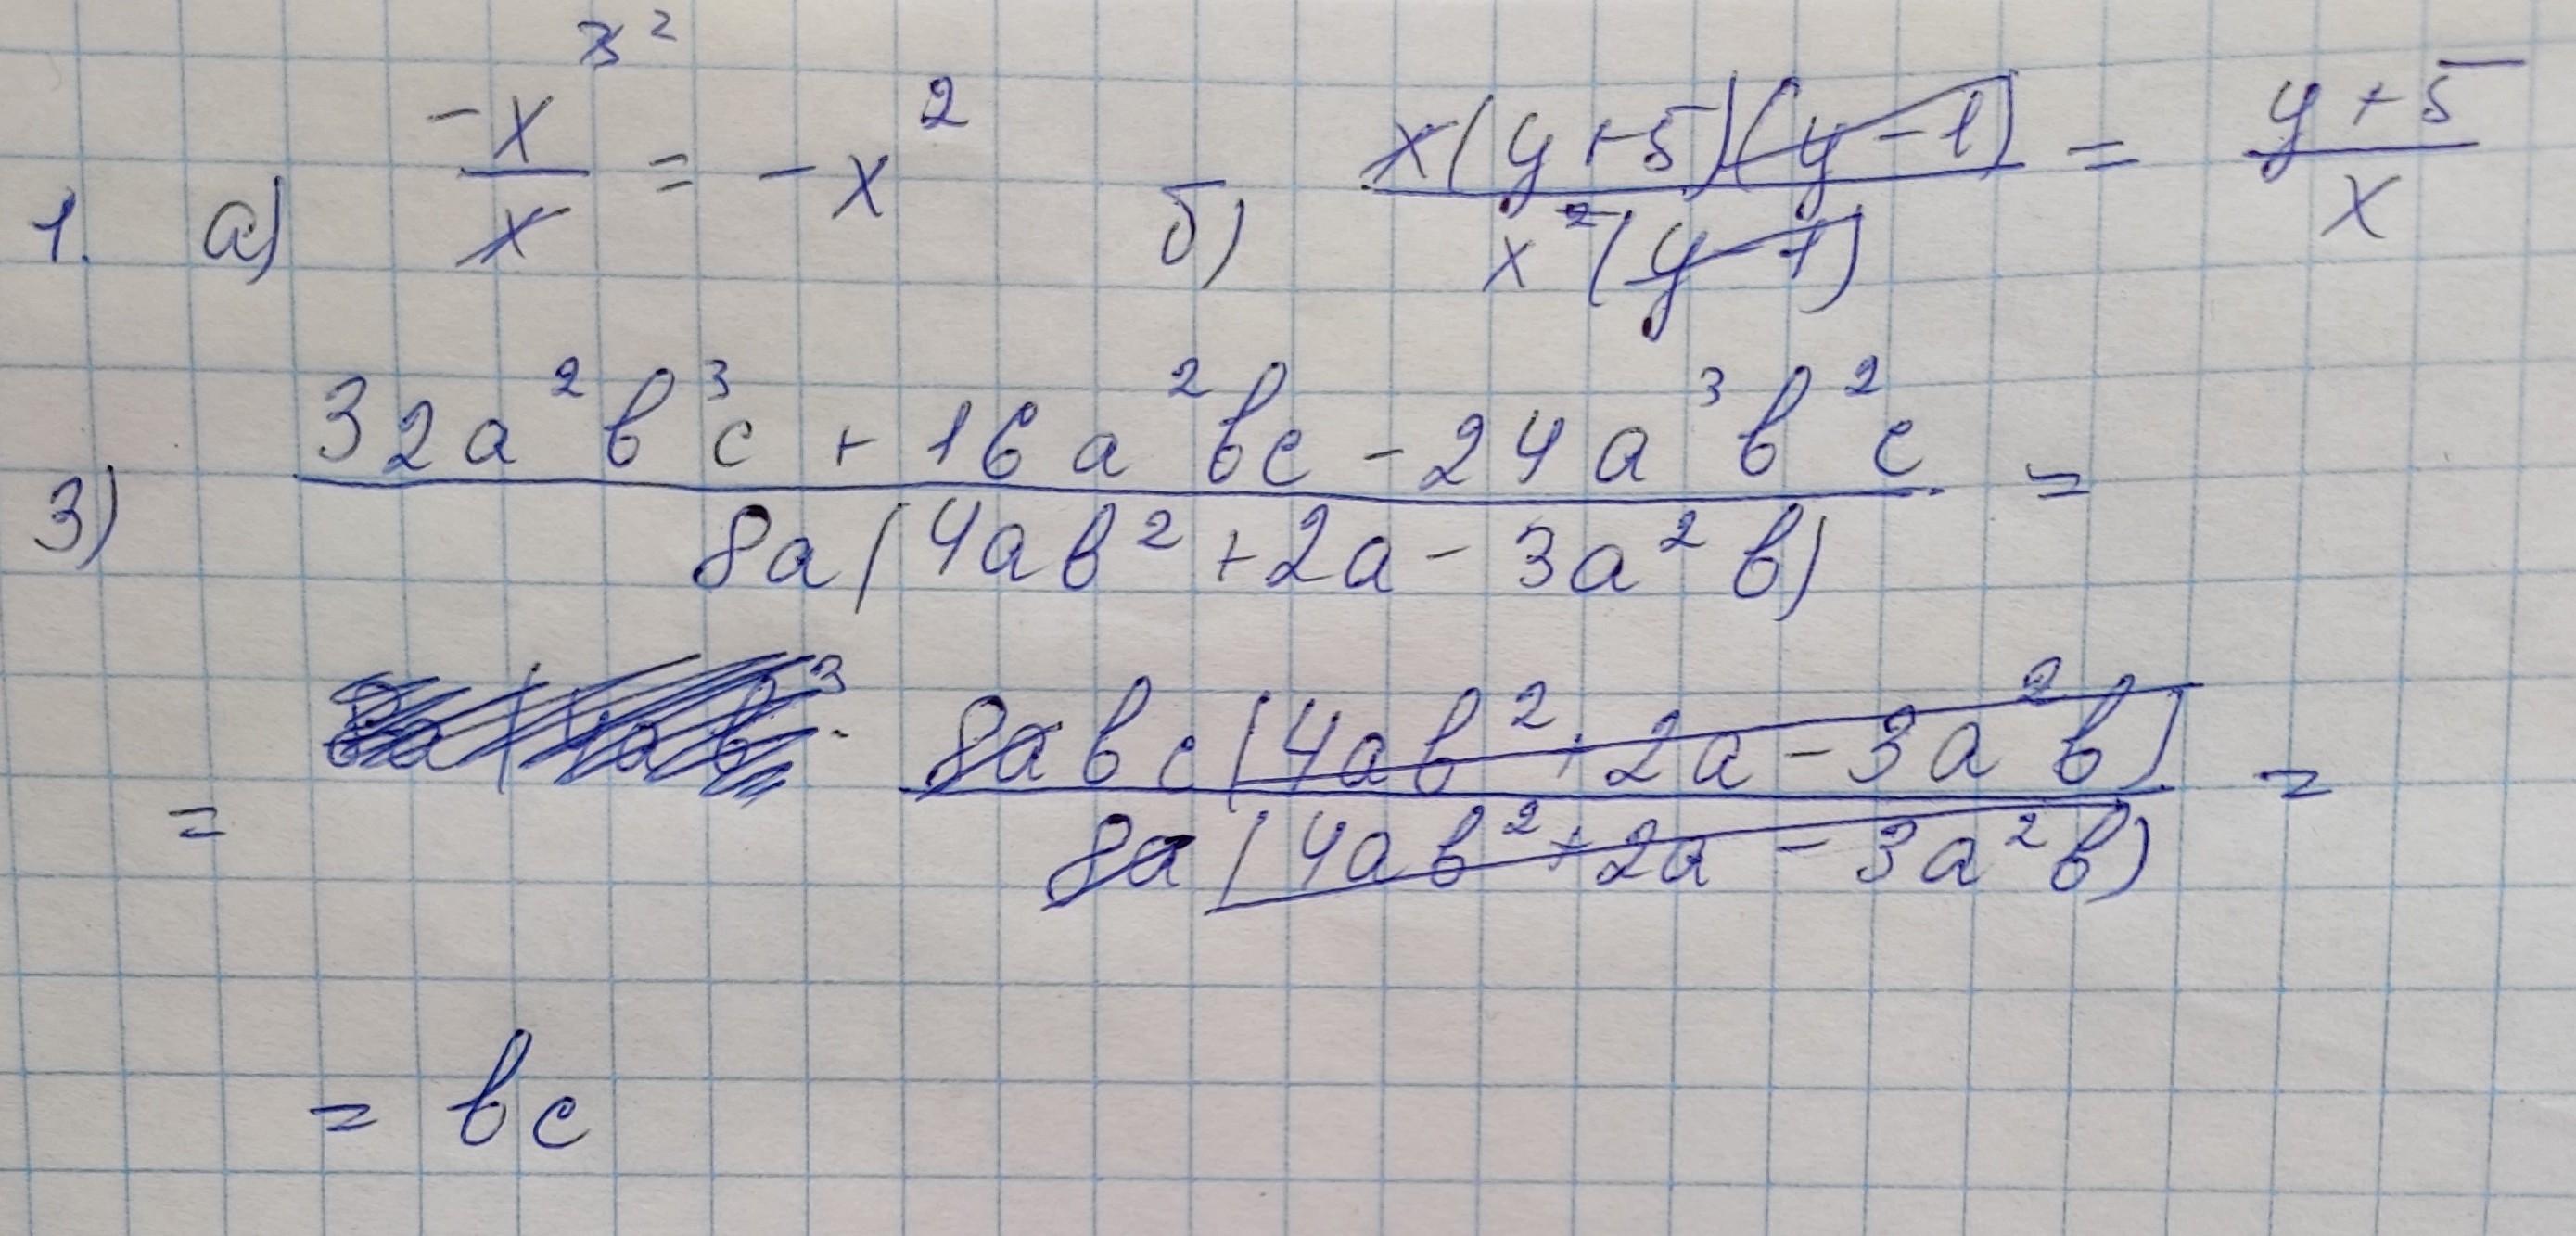 1. а) -x³² / x = -x² б) x(y+5)(y-1) / x²(y-1) = y+5 / x
3) 32a²b³c + 16a²bc - 24a³b²c / 8a(4ab² + 2a - 3a²b) =
= 8a(4ab³ 8abc(4ab² + 2a - 3a²b) / 8a(4ab² + 2a - 3a²b) =
= bc